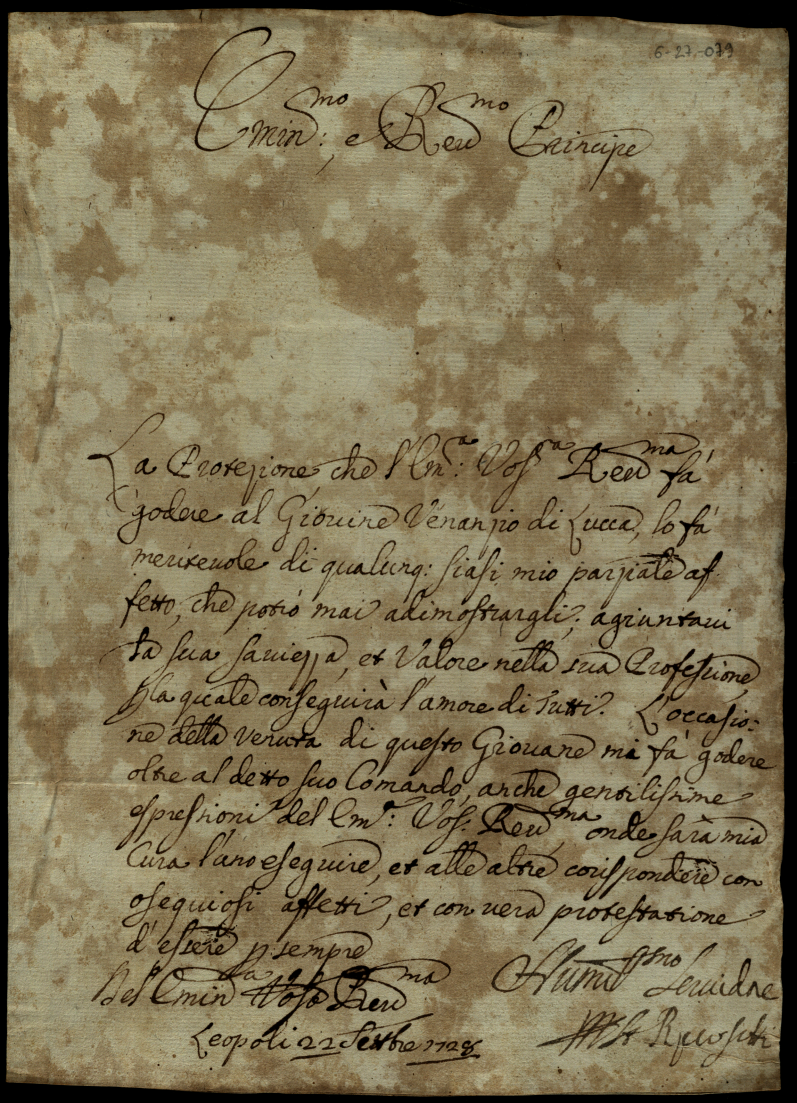 6-27-079
Emin:mo, e Reumo Principe
La Protezione che l'Em:a Vosra Reuma fà
godere al Giovine Venanzio di Lucca, lo fà
meriteuole di qualunq: siasi mio parziale af-
fetto, che potrò mai adimostrargli; agiuntaui
la sua sauiezza, et Valore nella sua Professione,
p la quale conseguirà l'amore di tutti. L'occasio:
ne della venuta di questo Giovane mi fà godere
oltre al detto suo Comando, anche gentilissime
espressioni del Em:a Vos: Reuma, onde sarà mia
Cura l'uno eseguire, et alle altre corispondere con
osequiosi affetti, et con vera protestatione
d'essere p sempre
Del Emina Vosa Reuma
Humilissmo Seruidre
Leopoli 22 Settbre 1728